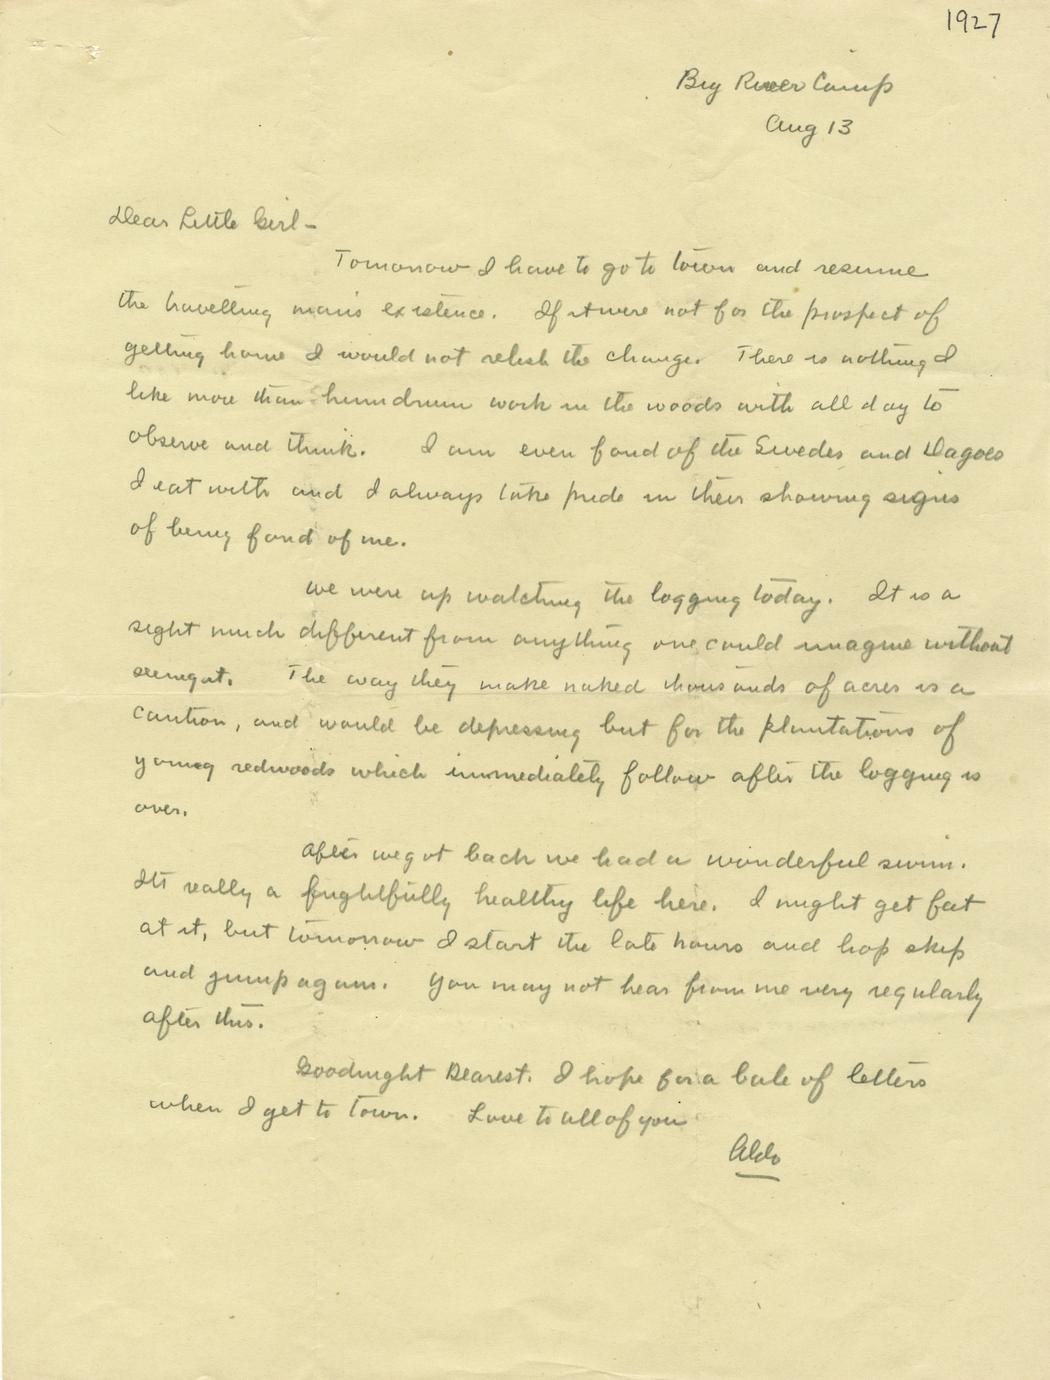 1927
Big River Camp
Aug 13
Dear Little Girl -
Tomorrow I have to go to town and resume
the travelling man's existence. If it were not for the prospect of
getting home I would not relish the change. There is nothing I
like more than humdrum work in the woods with all day to
observe and think. I am even fond of the Swedes and Dagoes
I eat with and I always take pride in their showing signs
of being fond of me.
We were up watching the logging today. It is a
sight much different from anything one could imagine without
seeing it. The way they make naked thousands of acres is a
caution, and would be depressing but for the plantations of
young redwoods which immediately follow after the logging is
over.
After we got back we had a wonderful swim.
Its really a frightfully healthy life here. I might get fat
at it, but tomorrow I start the late hours and hop skip
and jump again. You may not hear from me very regularly
after this.
Goodnight Dearest. I hope for a bale of letters
when I get to town. Love to all of you
Aldo